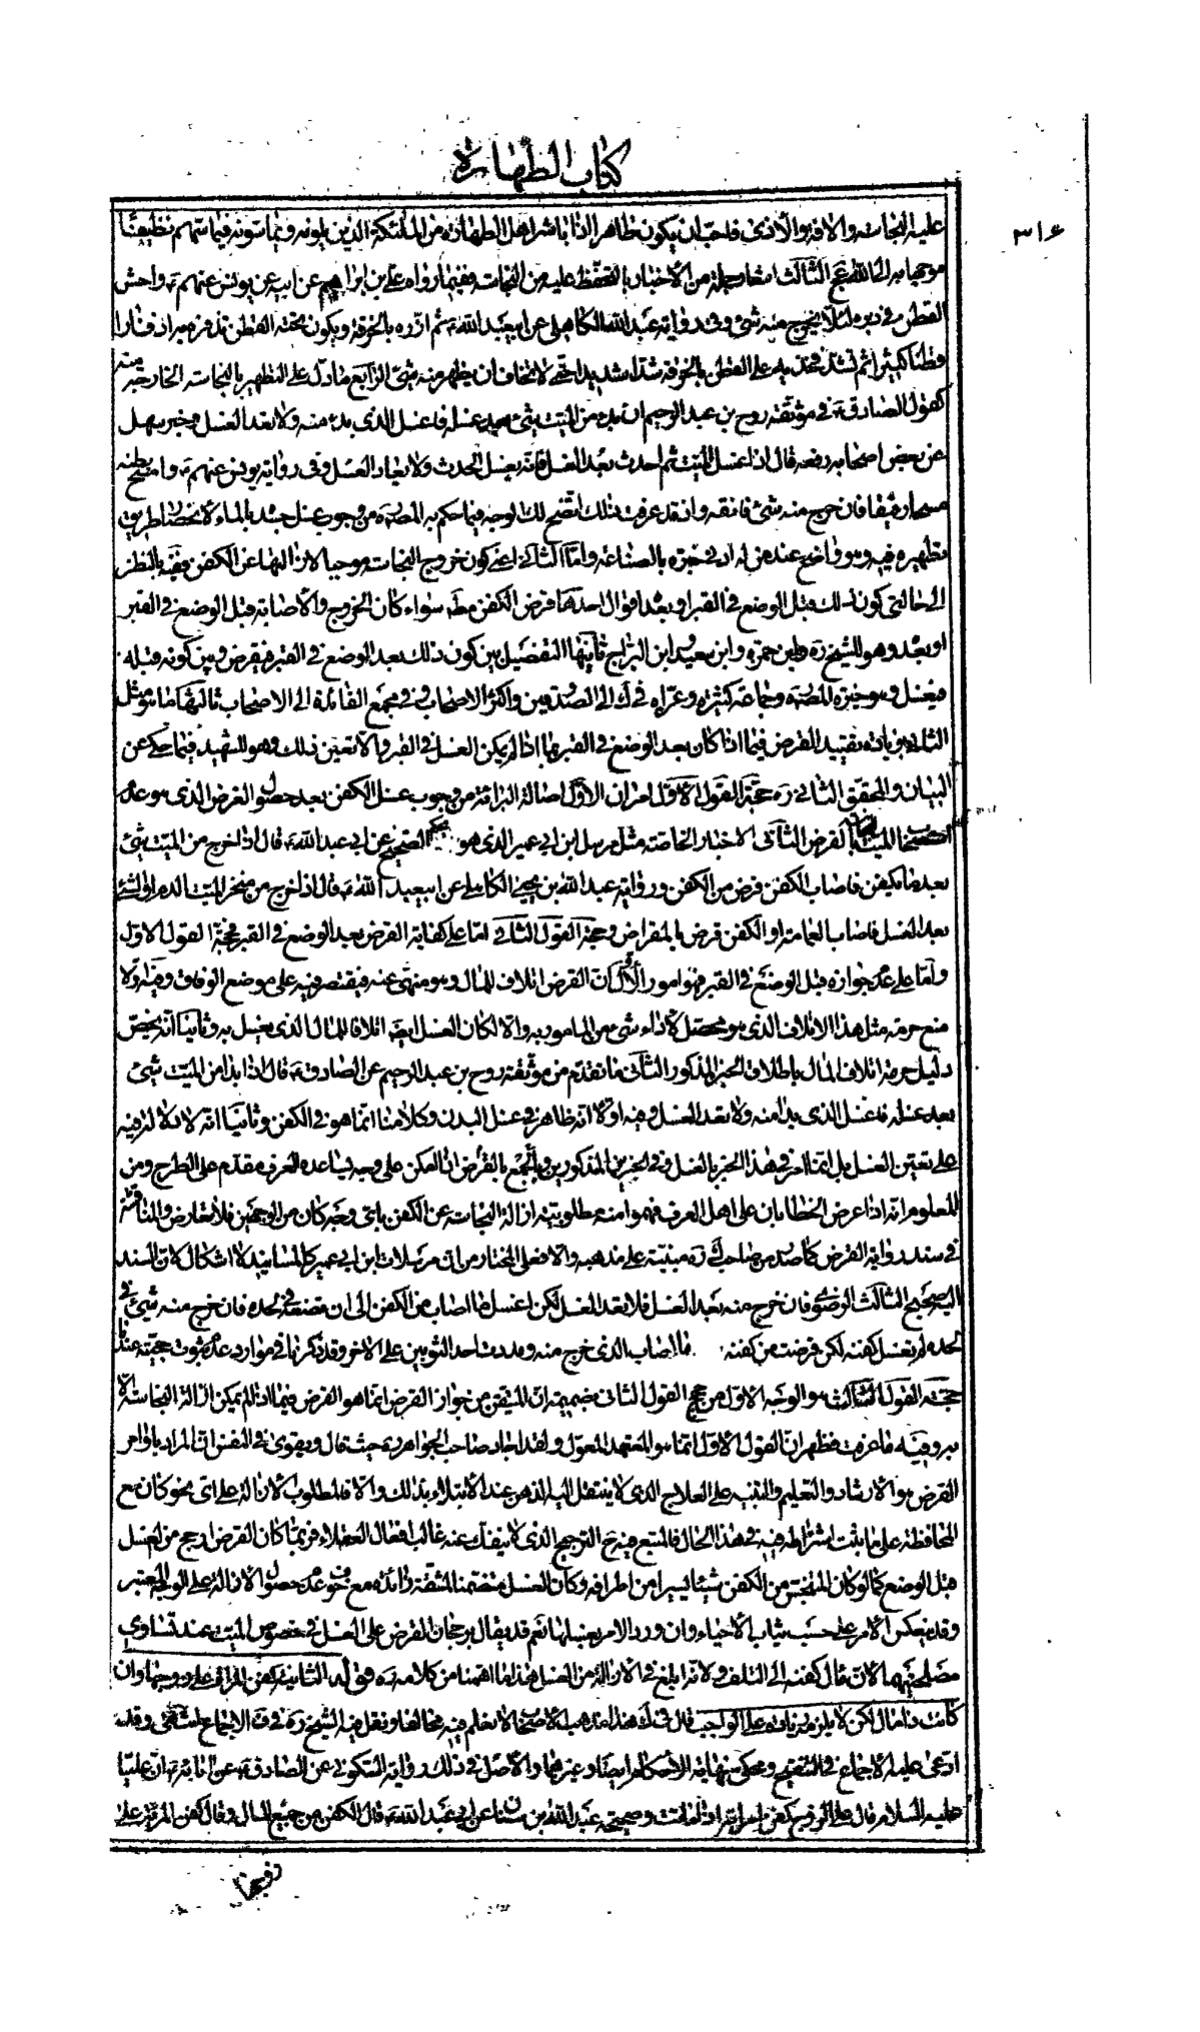 كتاب الطهارة
٣١۶
عليه النجاسة والآفة والأذى فاحب ان يكون طاهرا اذا باشر اهل الطهارة من الملئكة الذين يلونه ويماسونه فيماسهم نظيفا
موجها به الى الله عج الثالث اشعار جملة من الأخبار بالتحفظ عليه من النجاسة ففيما رواه علي بن ابراهيم عن ابيه عن يونس عنهم ع واحش
القطن في دبره لئلا يخرج منه شئ وفي رواية عبد الله الكاهلي عن ابيعبد الله ع ثم ازره بالخرقة ويكون تحته القطن تذفره به اذفارا
قطنا كثيرا ثم تشد فخذيه على القطن بالخرقة شدا شديدا حتى لا تخاف ان يظهر منه شئ الرابع ما دل على التطهير بالنجاسة الخارجة منه
كقول الصادق ع في موثقة روح بن عبد الرحيم ان بدء من الميت شئ بعد غسله فاغسل الذي بدء منه ولا تعد الغسل وخبر سهل
عن بعض اصحابه رفعه قال اذا غسل الميت ثم احدث بعد الغسل فانه يغسل الحدث ولا يعاد الغسل وفي رواية يونس عنهم ع وامسح بطنه
مسحا رفيقا فان خرج منه شئ فانقه واذ قد عرفت ذلك اتضح لك الوجه فيما حكم به المصره من وجوب غسل جسده بالماء لانحصار طريق
تطهيره فيه وهو واضح عند من له ادنى خبرة بالصناعة واما الثاني اعني كون خروج النجاسة موجبا لازالتها عن الكفن ففيه بالنظر
الى حالتي كون ذلك قبل الوضع في القبر او بعد اقوال احدها قرض الكفن مط سواء كان الخروج والأصابة قبل الوضع في القبر
او بعده وهو للشيخ ره وابن حمزة وابن سعيد وابن البراج ثانيها التفصيل بين كون ذلك بعد الوضع في القبر فيقرض وبين كونه قبله
فيغسل وهو خيرة المصره وجماعة كثيرة وعزاه في ك الى الصدوقين واكثر الاصحاب وفي مجمع الفائدة الى الاصحاب ثالثها ما هو مثل
الثاني بزيادة تقييد القرض فيما اذا كان بعد الوضع في القبر بما اذا لم يمكن الغسل في القبر والا تعين ذلك وهو للشهيد فيما حكي عن
البيان والمحقق الثاني ره حجة القول الأول امران الأول اصالة البرائة من وجوب غسل الكفن بعد حصول الغرض الذي هو عدم
استصحاب الميت النجاسة بالقرض الثاني الاخبار الخاصة مثل مرسل ابن ابي عمير الذي هو بحكم الصحيح عن ابي عبد الله ع قال اذا خرج من الميت شئ
بعد ما يكفن فاصاب الكفن قرض من الكفن ورواية عبد الله بن يحيى الكاهلي عن ابيعبد الله ع قال اذا خرج من منخر الميت الدم او الشئ
بعد الغسل فاصاب العمامة او الكفن قرض بالمقراض وحجة القول الثاني اما على كفاية القرض بعد الوضع في القبر فحجة القول الاول
واما على عدم جوازه قبل الوضع في القبر فهو امور الأول ان القرض اتلاف للمال وهو منهى عنه فيقتصر فيه على موضع الوفاق وفيه اولا
منع حرمة مثل هذا الاتلاف الذي هو محصل لأداء شئ من المأمور به والا لكان الغسل ايضا اتلافا للمال الذي يغسل به وثانيا انه يخص
دليل حرمة اتلاف المال باطلاق الخبر المذكور الثاني ما تقدم من موثقة روح بن عبد الرحيم عن الصادق ع قال اذا بدا من الميت شئ
بعد غسله فاغسل الذي بدا منه ولا تعد الغسل وفيه اولا انه ظاهر في غسل البدن وكلامنا انما هو في الكفن وثانيا انه لا دلالة فيه
على تعين الغسل بل انما امر في هذا الخبر بالغسل وفي الخبرين المذكورين بالقرض والجمع ان امكن على وجه يساعده العرف مقدم على الطرح ومن
المعلوم انه اذا عرض الخطابان على اهل العرف فهموا منه مطلوبية ازالة النجاسة عن الكفن باى وجه كان من الوجهين فلا تعارض والمناقشة
في سند رواية القرض كما صدر من صاحب ك ره مبنية على مذهبه والا فعلى المختار من ان مرسلات ابن ابي عمير كالمسانيد لا اشكال لان السند
اليه صحيح الثالث الرضوي فان خرج منه شئ بعد الغسل فلا تعد الغسل لكن اغسل ما اصاب من الكفن الى ان تضعه في لحده فان خرج منه شئ في
لحده لم تغسل كفنه لكن قرضت من كفنه ما اصاب الذي خرج منه ومددت احد الثوبين على الاخر وقد ذكرنا في موارد عدم ثبوت حجيته عندنا
حجة القول الثالث هو الوجه الاول من حجج القول الثاني بضميمة ان المتيقن من جواز القرض انما هو القرض فيما اذا لم يمكن ازالة النجاسة الا
به وفيه ما عرفت فظهر ان القول الاول انما هو المعتمد المعول ولقد اجاد صاحب الجواهر ره حيث قال ويقوى في النفس ان المراد باوامر
القرض هو الأرشاد والتعليم والتنبيه على العلاج الذي لا ينتقل اليه الذهن عند الأبتلاء بذلك والا فالمطلوب الأزالة على اى نحو كان مع
المحافظة على ما يثبت اشتراطه فيه في هذا الحال فالمتبع فيه ح الترجيح الذي لا ينفك عنه غالب افعال العقلاء فربما كان القرض ارجح من الغسل
قبل الوضع كما لو كان المتنجس من الكفن شيئا يسيرا من اطرافه وكان الغسل متضمنا لمشقة زائدة مع خوف عدم حصول الأزالة على الوجه المعتبر
وقد ينعكس الأمر على حسب ثياب الأحياء وان ورد الامر بغسلها نعم قد يقال برجحان القرض على الغسل في خصوص الميت عند تساوي
مصلحتيهما لأن مآل كفنه الى التلف ولأنه ابلغ في الازالة من الغسل هذا ما اهمنا من كلامه ره وق له الثانية كفن المرأة على زوجها وان
كانت ذا مال لكن لا يلزمه زيادة على الواجب قال في ك هذا مذهب الأصحاب لا نعلم فيه مخالفا ونقل فيه الشيخ ره في ف الاجماع انتهى وقد
ادعى عليه الاجماع في التنقيح ومحكي نهاية الأحكام ايضا وغيرهما والأصل في ذلك رواية السكوني عن الصادق ع عن ابائه ع ان عليا
عليه السلام قال على الزوج كفن امرأته اذا ماتت وصحيحة عبد الله بن سنان عن ابي عبد الله ع قال الكفن من جميع المال وقال كفن المرأة على
زوجها